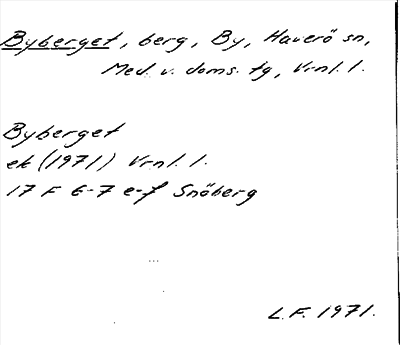 Byberget, berg, By, Haverö sn,
Med. v. doms. tg, Vrnl. l.
Byberget
ek (1971) Vrnl. l.
17 F 6-7 e-f Snöberg
L.F. 1971.